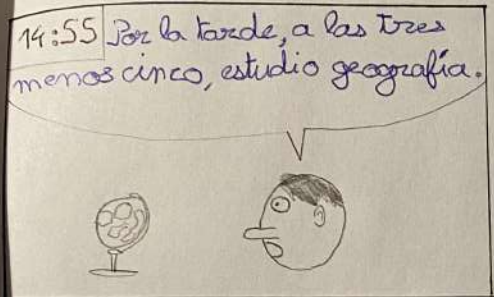 14:55 Por la tarde, a las tres
menos cinco, estudio geografía.